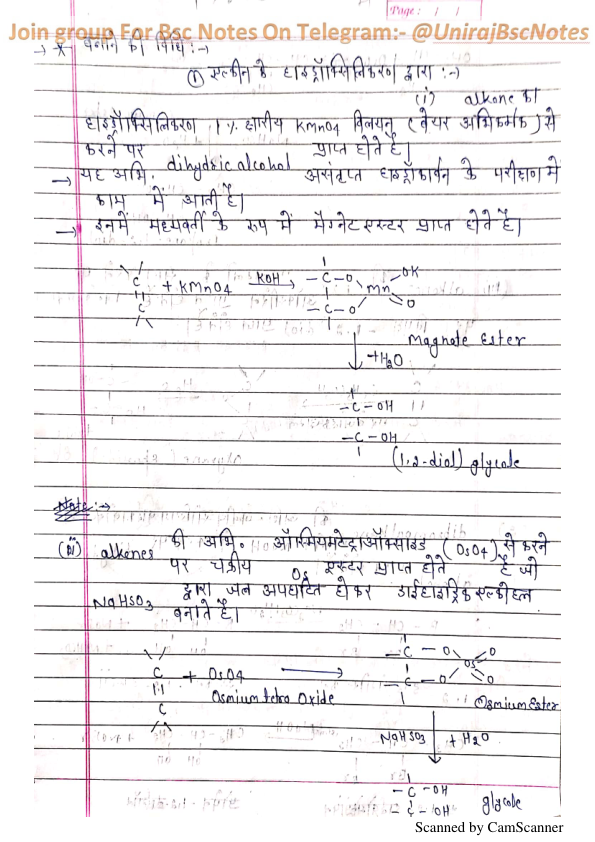 Page: / /
Join group For Bsc Notes On Telegram:- @UnirajBscNotes
→ * बनाने की विधि :→
① एल्कीन के हाइड्रॉक्सिलिकरण द्वारा :→
(i) alkene का
हाइड्रॉक्सिलिकरण 1% क्षारीय KMnO4 विलयन (बेयर अभिकर्मक) से
करने पर dihydric alcohol प्राप्त होते है।
→ यह अभि. असंतृप्त हाइड्रोकार्बन के परीक्षण मे
काम में आती है।
→ इनमें मध्यवर्ती के रूप में मैग्नेट एस्टर प्राप्त होते है।
C
C
+ KMnO4
KOH
-C-O
-C-O
Mn
OK
O
Magnate Ester
+H2O
-C-OH
-C-OH
(1,2-diol) glycole
Note:→
(ii) alkenes की अभि. ऑस्मियमटेट्राऑक्साइड (OsO4) से करने
पर चक्रीय Os एस्टर प्राप्त होते है जो
NaHSO3 द्वारा जल अपघटित होकर डाईहाइड्रिक एल्कोहल
बनाते है।
C
C
+ OsO4
Osmium tetro Oxide
-C-O
-C-O
Os
O
O
Osmium Ester
NaHSO3 + H2O
-C-OH
-C-OH
glycole
Scanned by CamScanner